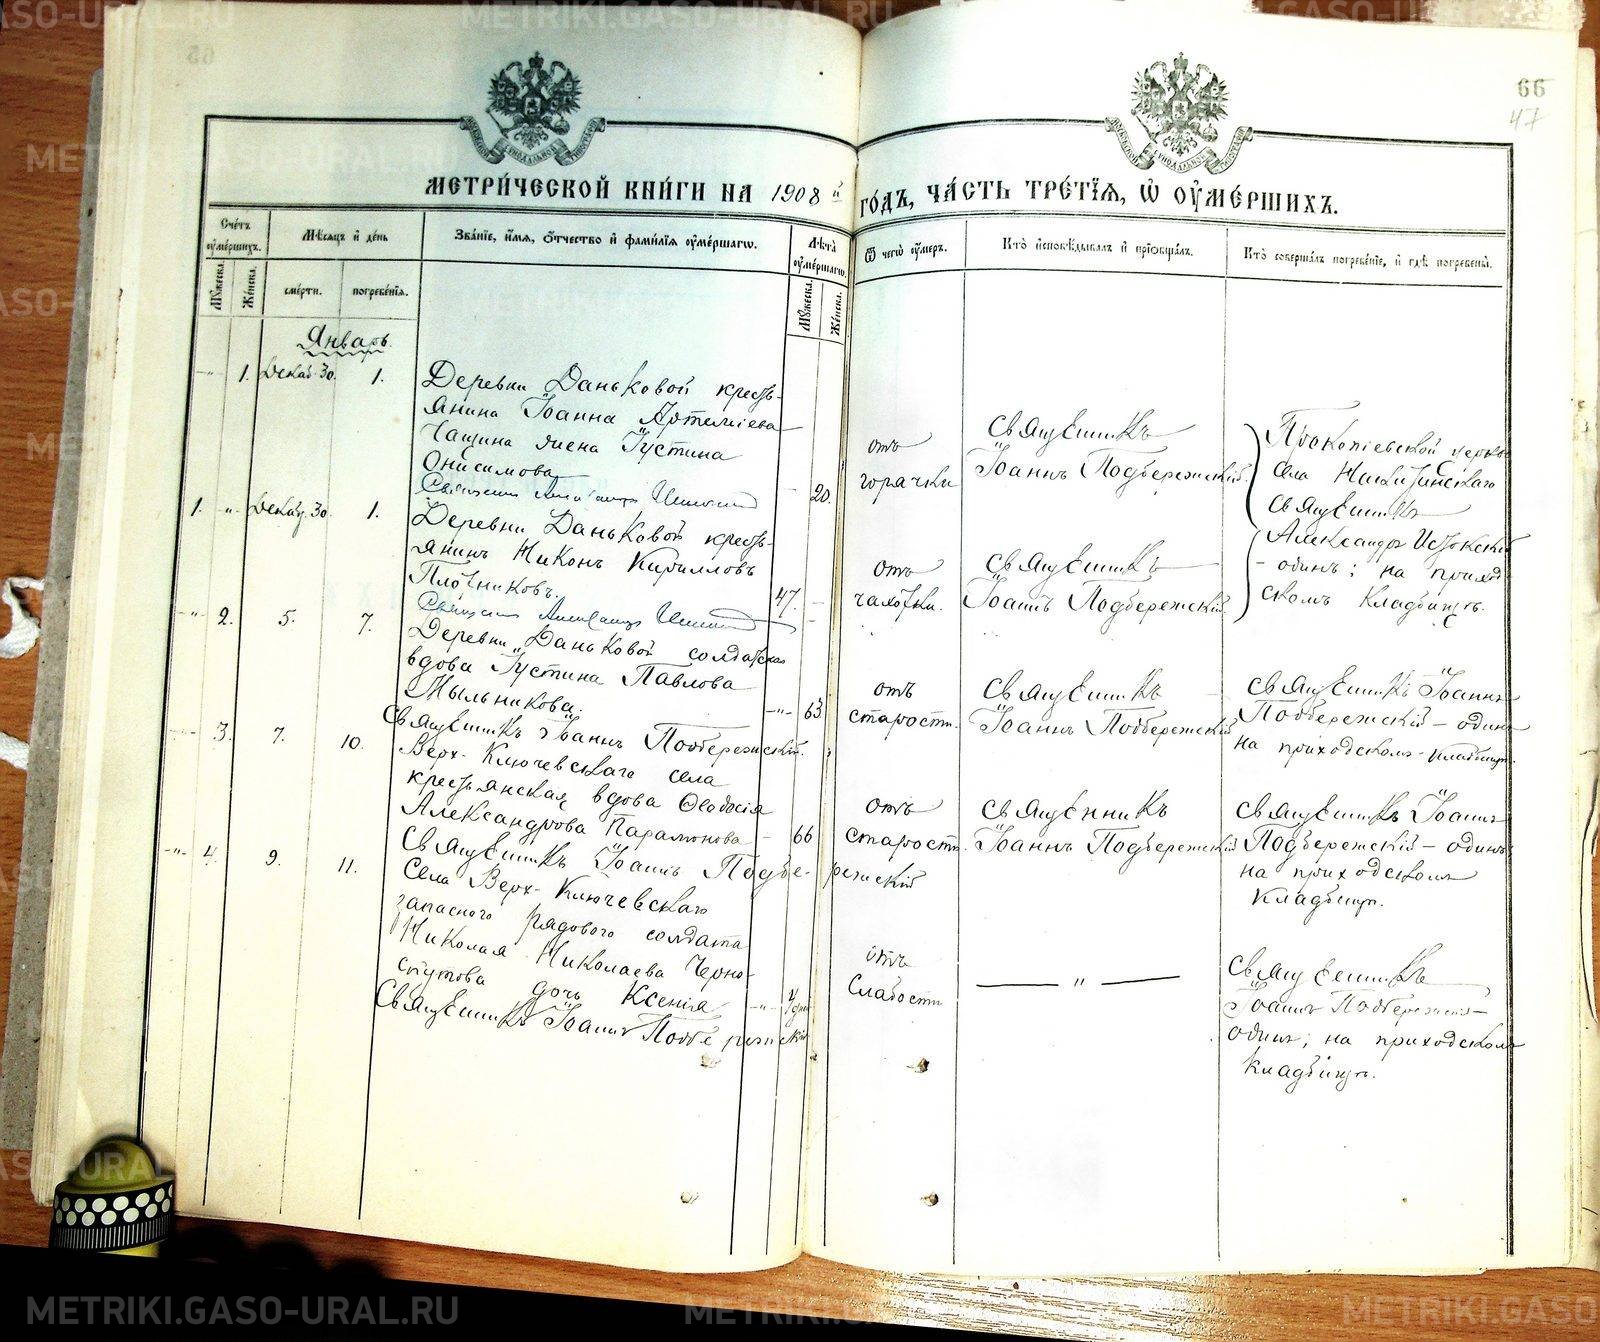 METRIKI.GASO-URAL.RU
66
47
МЕТРИ́ЧЕСКОЙ КНИ́ГИ НА 1908 й ГО́ДЪ, ЧА́СТЬ ТРЕ́ТІѦ, Ѡ ОУМЕ́РШИХЪ.
Счетъ оумершихъ.
Мѣсяцъ и день
Званіе, имя, отчество и фамилія оумершаго.
Лѣта оумершаго.
Ѿ чего оумеръ.
Кто исповѣдывалъ и пріобщалъ.
Кто совершалъ погребеніе, и гдѣ погребены.
Мужеска.
Женска.
смерти.
погребенія.
Мужеска.
Женска.
Январь.
1. Декаб. 30. 1.
Деревни Даньковой кресть-
янина Іоанна Артеміева
Чащина жена Іустина
Онисимова 20.
отъ
горячки
Священникъ
Іоаннъ Подбережскій.
Прокопіевской церкви
села
Священникъ
Александръ Истокскій
- одинъ; на приход-
скомъ кладбищѣ.
1. " Декаб. 30. 1.
Деревни Даньковой кресть-
янинъ Никонъ Кирилловъ
Плотниковъ. 47.
отъ
чахотки.
Священникъ
Іоаннъ Подбережскій.
-"- 2. 5. 7.
Деревни Даньковой солдатская
вдова Іустина Павлова
Мыльникова. -"- 63
Священникъ Іоаннъ Подбережскій.
отъ
старости.
Священникъ
Іоаннъ Подбережскій
Священникъ Іоаннъ
Подбережскій - одинъ
на приходскомъ кладбищѣ.
3. 7. 10.
Верх-Ключевскаго села
крестьянская вдова Ѳеодосія
Александрова Парамонова - 66
Священникъ Іоаннъ Подбе-режскій
отъ
старости.
Священникъ
Іоаннъ Подбережскій
Священникъ Іоаннъ
Подбережскій - одинъ
на приходскомъ
кладбищѣ.
-"- 4. 9. 11.
Села Верх-Ключевскаго
запаснаго рядового солдата
Николая Николаева Черно-
скутова дочь Ксенія -"- 4 дня
Священникъ Іоаннъ Подбережскій
отъ
слабости
"
Священникъ
Іоаннъ Подбережскій -
одинъ; на приходскомъ
кладбищѣ.
METRIKI.GASO-URAL.RU
METRIKI.GASO-URAL.RU